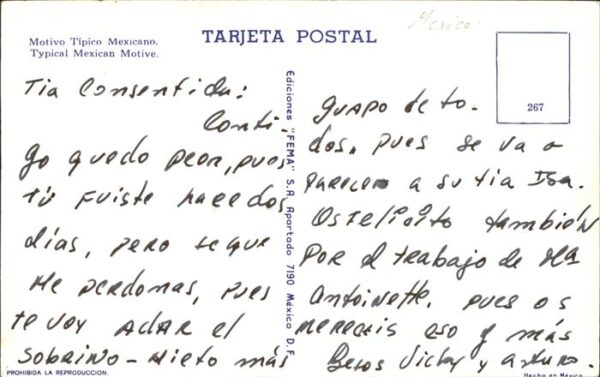 Mexico
Motivo Típico Mexicano.
Typical Mexican Motive.
TARJETA POSTAL
267
Tia Consentida:
Conti-
go quedo peor, pues
tú fuiste hace dos
días, pero se que
me perdonas, pues
te voy a dar el
sobrino-nieto más
Ediciones "FEMA" S.A. Apartado 7190 México D.F.
guapo de to-
dos, pues se va a
parecer a su tia Isa.
Os felicito también
por el trabajo de Mª
Antoinette, pues os
mereceis eso y más
Besos Vicky y Arturo.
PROHIBIDA LA REPRODUCCION.
Hecho en México